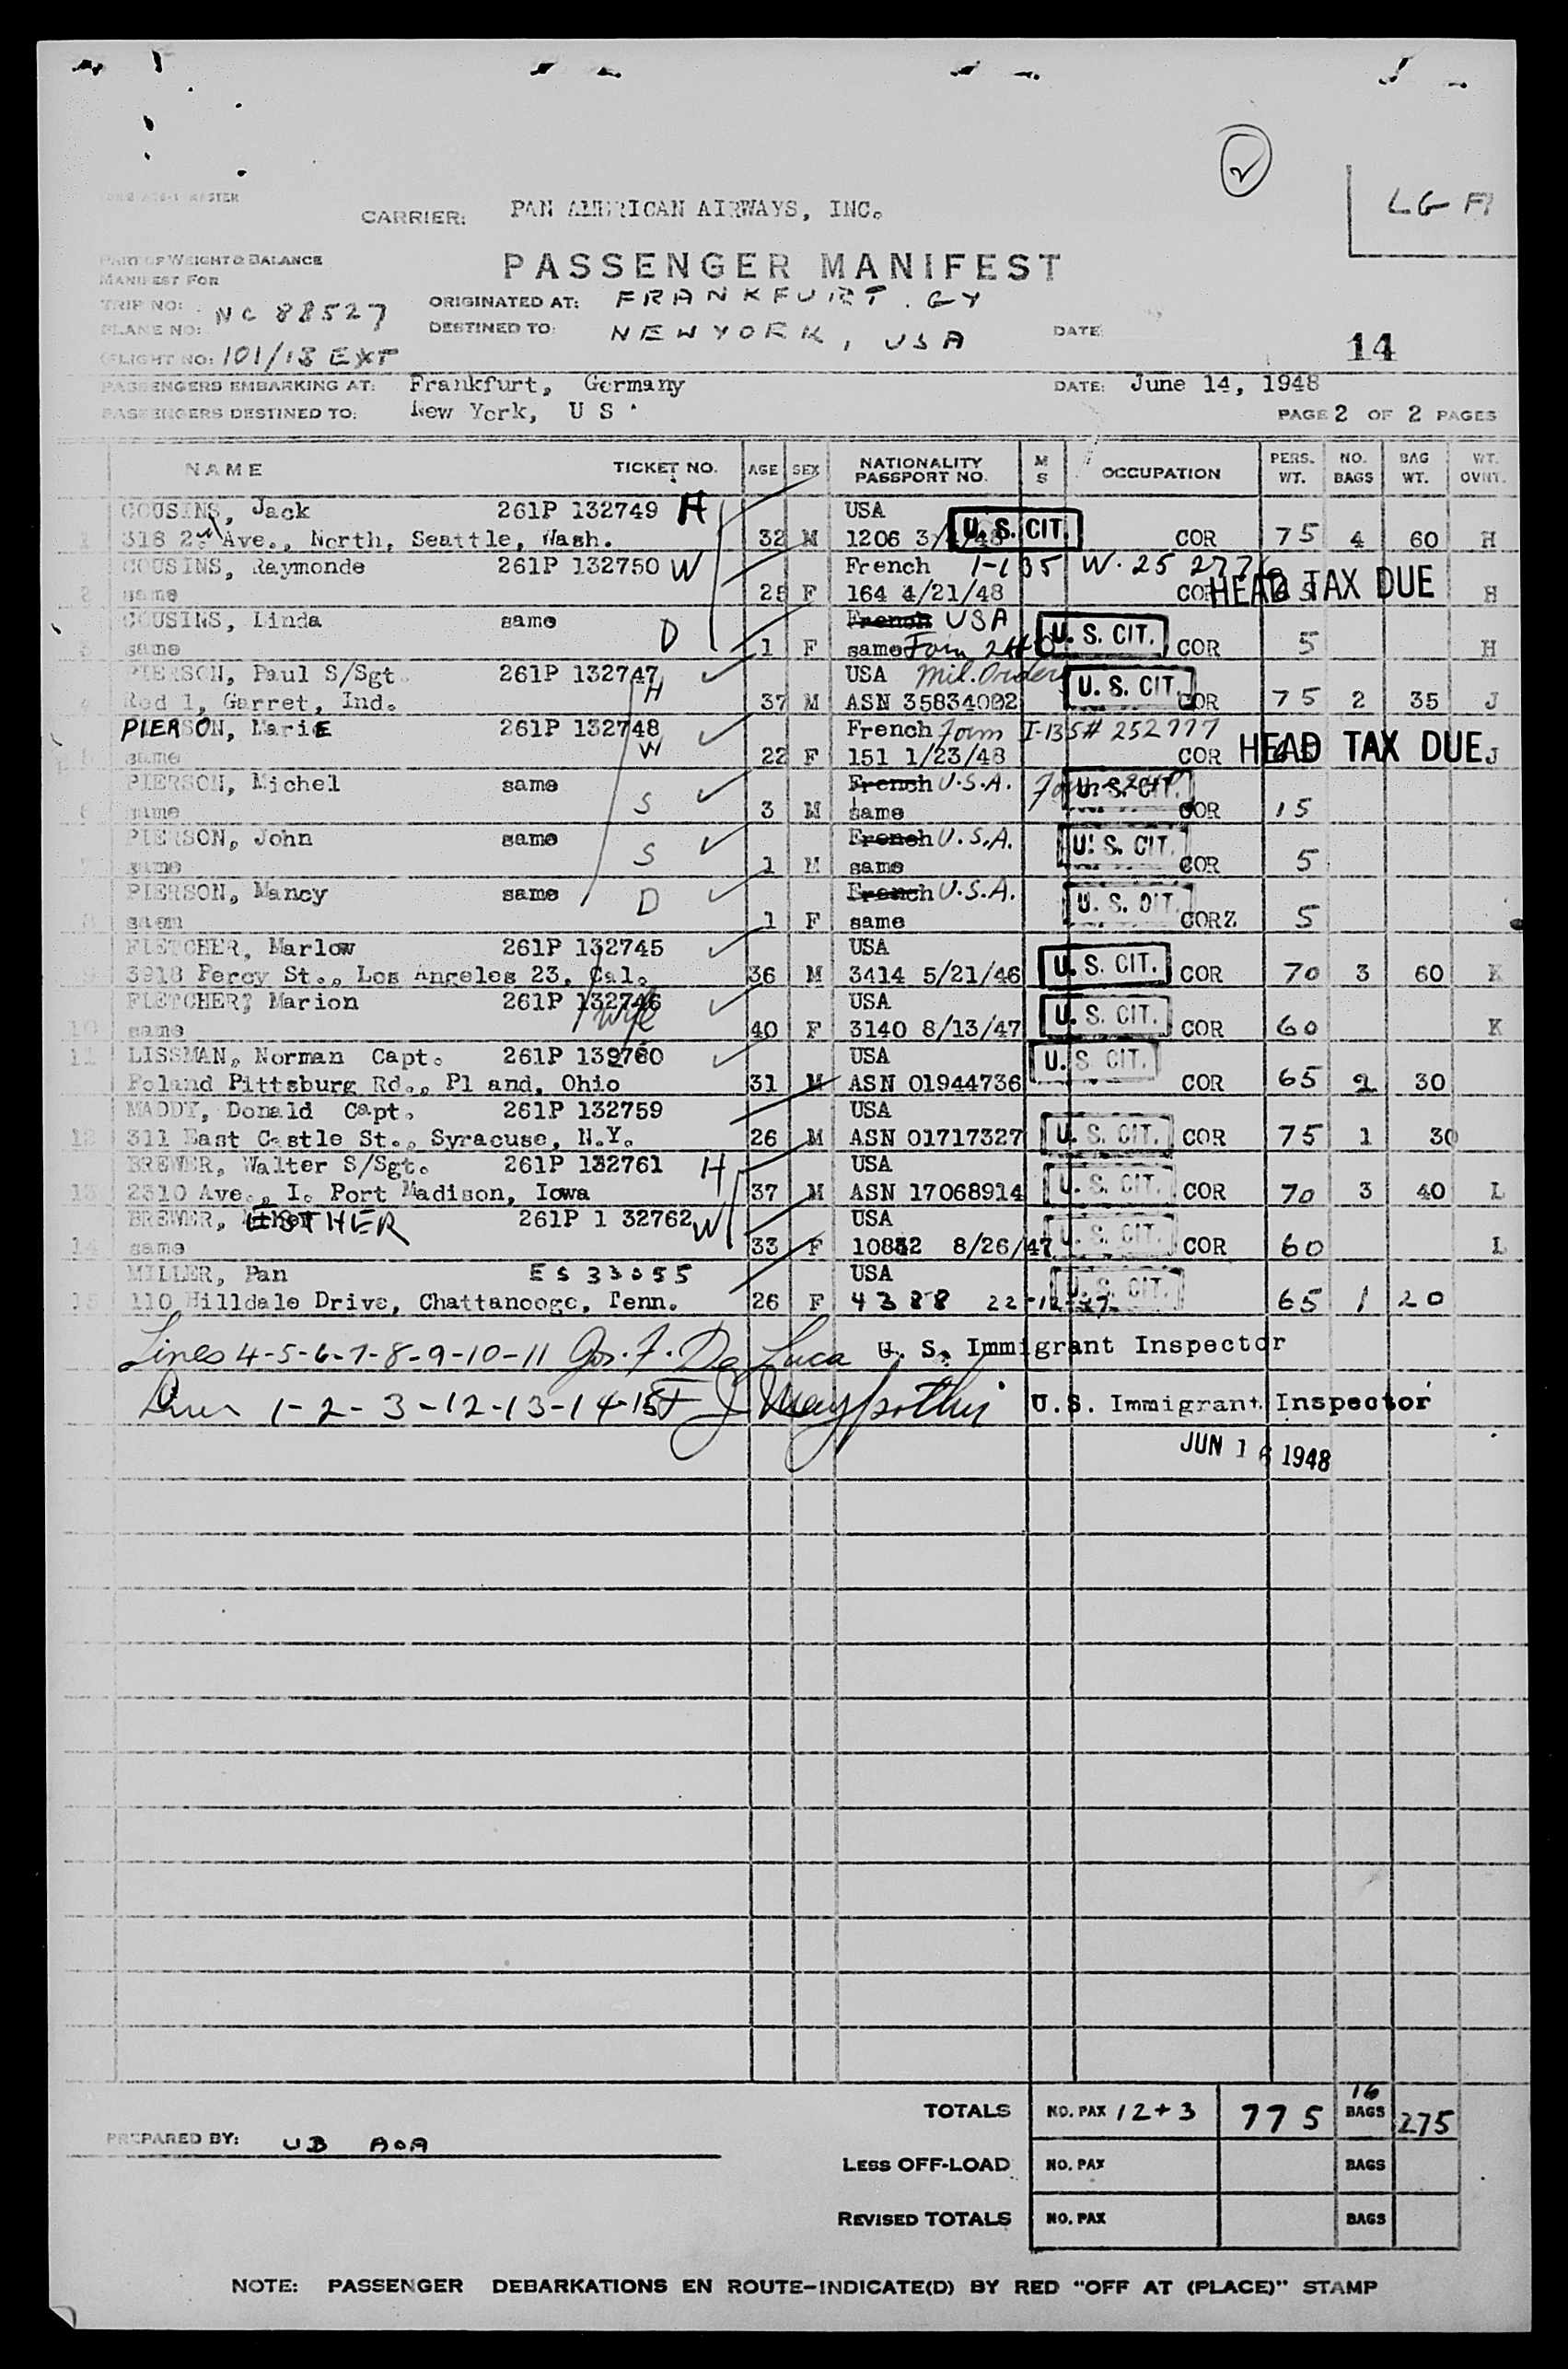 LG FI
CARRIER: PAN AMERICAN AIRWAYS, INC.
PART OF WEIGHT & BALANCE
MANIFEST FOR
PASSENGER MANIFEST
TRIP NO:
PLANE NO: NC 88527
ORIGINATED AT: FRANKFURT. GY
DESTINED TO: NEW YORK, USA
DATE:
14
FLIGHT NO: 101/13 EXT
PASSENGERS EMBARKING AT: Frankfurt, Germany DATE: June 14, 1948
PASSENGERS DESTINED TO: New York, U S
PAGE 2 OF 2 PAGES
NAME TICKET NO. AGE SEX NATIONALITY PASSPORT NO. M S OCCUPATION PERS. WT. NO. BAGS BAG WT. WT. OVNT.
COUSINS, Jack 261P 132749 H USA
1 318 2nd Ave., North, Seattle, Wash. 32 M 1206 U. S. CIT. COR 75 4 60 H
COUSINS, Raymonde 261P 132750 W French
2 same 25 F 164 4/21/48 HEAD TAX DUE H
COUSINS, Linda same D French USA
3 same 1 F same Form U. S. CIT. COR 5 H
PIERSON, Paul S/Sgt. 261P 132747 H USA Mil. Orders
4 Red 1, Garret, Ind. 37 M ASN 35834092 U. S. CIT. COR 75 2 35 J
PIERSON, MariE 261P 132748 W French Form I-135# 252777
5 same 22 F 151 1/23/48 COR HEAD TAX DUE J
PIERSON, Michel same S French U.S.A.
6 same 3 M same U. S. CIT. COR 15
PIERSON, John same S French U.S.A.
7 same 1 M same U. S. CIT. COR 5
PIERSON, Nancy same D French U.S.A.
8 saem 1 F same U. S. CIT. CORZ 5
FLETCHER, Marlow 261P 132745 USA
9 3918 Percy St., Los Angeles 23, Cal. 36 M 3414 5/21/46 U. S. CIT. COR 70 3 60 K
FLETCHER, Marion 261P 132746 wife USA
10 same 40 F 3140 8/13/47 U. S. CIT. COR 60 K
11 LISSMAN, Norman Capt. 261P 132760 USA
Poland Pittsburg Rd., Pl and, Ohio 31 M ASN 01944736 U. S. CIT. COR 65 2 30
MADDY, Donald Capt. 261P 132759 USA
12 311 East Castle St., Syracuse, N.Y. 26 M ASN 01717327 U. S. CIT. COR 75 1 30
BREWER, Walter S/Sgt. 261P 132761 H USA
13 2310 Ave., I. Port Madison, Iowa 37 M ASN 17068914 U. S. CIT. COR 70 3 40 L
BREWER, ESTHER 261P 1 32762 W USA
14 same 33 F 8/26/47 U. S. CIT. COR 60 L
MILLER, Pan ES 33055 USA
15 110 Hilldale Drive, Chattanooge, Tenn. 26 F 4388 U. S. CIT. 65 1 20
Lines 4-5-6-7-8-9-10-11 Jos. F. De Luca U. S. Immigrant Inspector
Lines 1-2-3-12-13-14-15 U.S. Immigrant Inspector
JUN 16 1948
TOTALS NO. PAX 12+3 775 16 BAGS 275
PREPARED BY: UB AOA
LESS OFF-LOAD NO. PAX BAGS
REVISED TOTALS NO. PAX BAGS
NOTE: PASSENGER DEBARKATIONS EN ROUTE-INDICATE(D) BY RED "OFF AT (PLACE)" STAMP